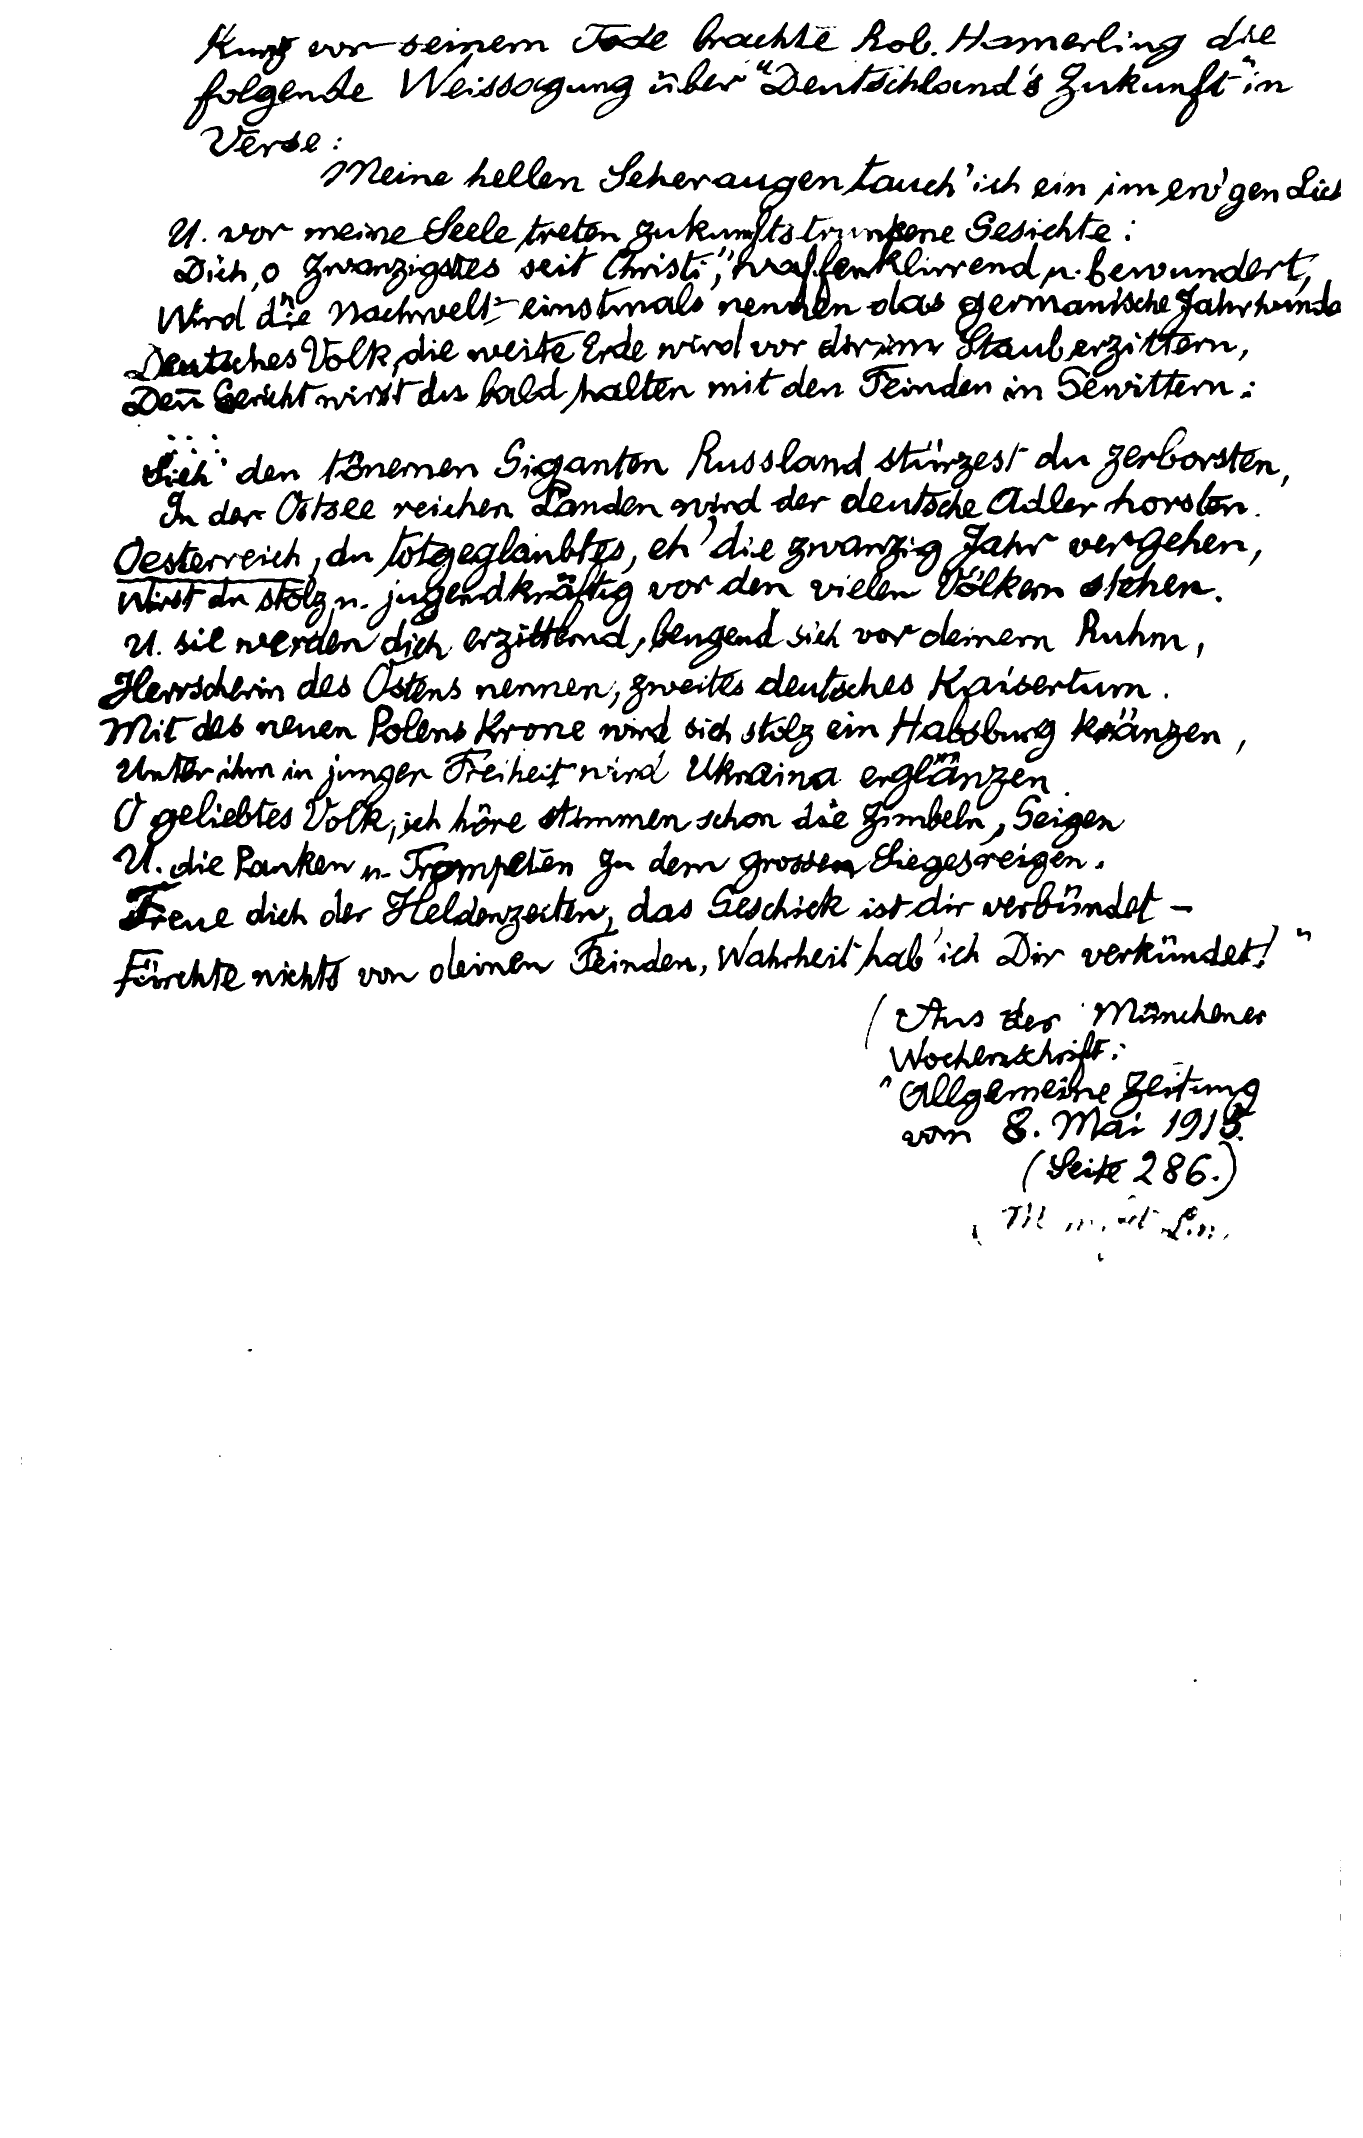 Kurz vor seinem Tode brachte Rob. Hamerling die
folgende Weissagung über "Deutschland's Zukunft" in
Verse:
Meine hellen Seheraugen tauch' ich ein im ew'gen Lich
U. vor meine Seele treten zukunftstrunkene Gesichte:
Dich, o Zwanzigstes seit Christi," waffenklirrend u. bewundert,
Wird die Nachwelt einstmals nennen das germanische Jahrhunde
Deutsches Volk, die weite Erde wird vor dir im Staub erzittern,
Den̄ Gericht wirst du bald halten mit den Feinden in Gewittern:
Sieh' den tönernen Giganten Russland stürzest du zerborsten,
In der Ostsee reichen Landen wird der deutsche Adler horsten.
Oesterreich, du totgeglaubtes, eh' die zwanzig Jahr vergehen,
Wirst du stolz u. jugendkräftig vor den vielen Völkern stehen.
U. sie werden dich erzitternd, beugend sich vor deinem Ruhm,
Herrscherin des Ostens nennen, zweites deutsches Kaisertum.
Mit des neuen Polens Krone wird sich stolz ein Habsburg kränzen,
Unter ihm in junger Freiheit wird Ukraina erglänzen.
O geliebtes Volk, ich höre stimmen schon die Zimbeln, Geigen
U. die Pauken u. Trompeten zu dem grossen Siegesreigen.
Freue dich der Heldenzeiten, das Geschick ist dir verbündet –
Fürchte nichts von deinen Feinden, Wahrheit hab' ich Dir verkündet!"
(Aus der Münchener
Wochenschrift:
"Allgemeine Zeitung
vom 8. Mai 1915.
(Seite 286.)